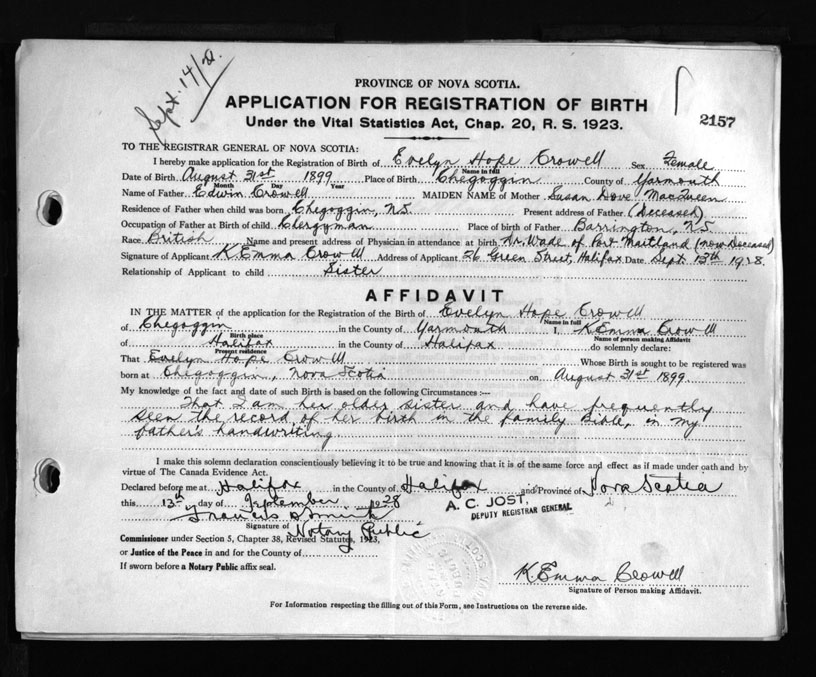 Sept. 14/28.
PROVINCE OF NOVA SCOTIA.
APPLICATION FOR REGISTRATION OF BIRTH
Under the Vital Statistics Act, Chap. 20, R. S. 1923.
2157
TO THE REGISTRAR GENERAL OF NOVA SCOTIA:
I hereby make application for the Registration of Birth of Evelyn Hope Crowell Sex Female
Name in full
Date of Birth August 31st 1899 Place of Birth Chegoggin County of Yarmouth
Month Day Year
Name of Father Edwin Crowell MAIDEN NAME of Mother Susan Dove MacQueen
Residence of Father when child was born Chegoggin, N.S. Present address of Father (deceased)
Occupation of Father at Birth of child Clergyman Place of birth of Father Barrington, N.S.
Race British Name and present address of Physician in attendance at birth Dr. Wade of Port Maitland (now Deceased)
Signature of Applicant K Emma Crowell Address of Applicant 26 Green Street, Halifax Date Sept. 13th 1928.
Relationship of Applicant to child Sister
AFFIDAVIT
IN THE MATTER of the application for the Registration of the Birth of Evelyn Hope Crowell
Name in full
of Chegoggin in the County of Yarmouth I, K Emma Crowell
Birth place Name of person making Affidavit
of Halifax in the County of Halifax do solemnly declare:
Present residence
That Evelyn Hope Crowell Whose Birth is sought to be registered was
born at Chegoggin, Nova Scotia on August 31st 1899.
My knowledge of the fact and date of such Birth is based on the following Circumstances :--
That I am her older sister and have frequently
seen the record of her birth in the family Bible, in my
father's handwriting.
I make this solemn declaration conscientiously believing it to be true and knowing that it is of the same force and effect as if made under oath and by
virtue of The Canada Evidence Act.
Declared before me at Halifax in the County of Halifax and Province of Nova Scotia
this 13th day of September 1928
A. C. JOST,
DEPUTY REGISTRAR GENERAL
Francis
Signature of Notary Public
Commissioner under Section 5, Chapter 38, Revised Statutes, 1923,
or Justice of the Peace in and for the County of
If sworn before a Notary Public affix seal.
K Emma Crowell
Signature of Person making Affidavit.
For Information respecting the filling out of this Form, see Instructions on the reverse side.